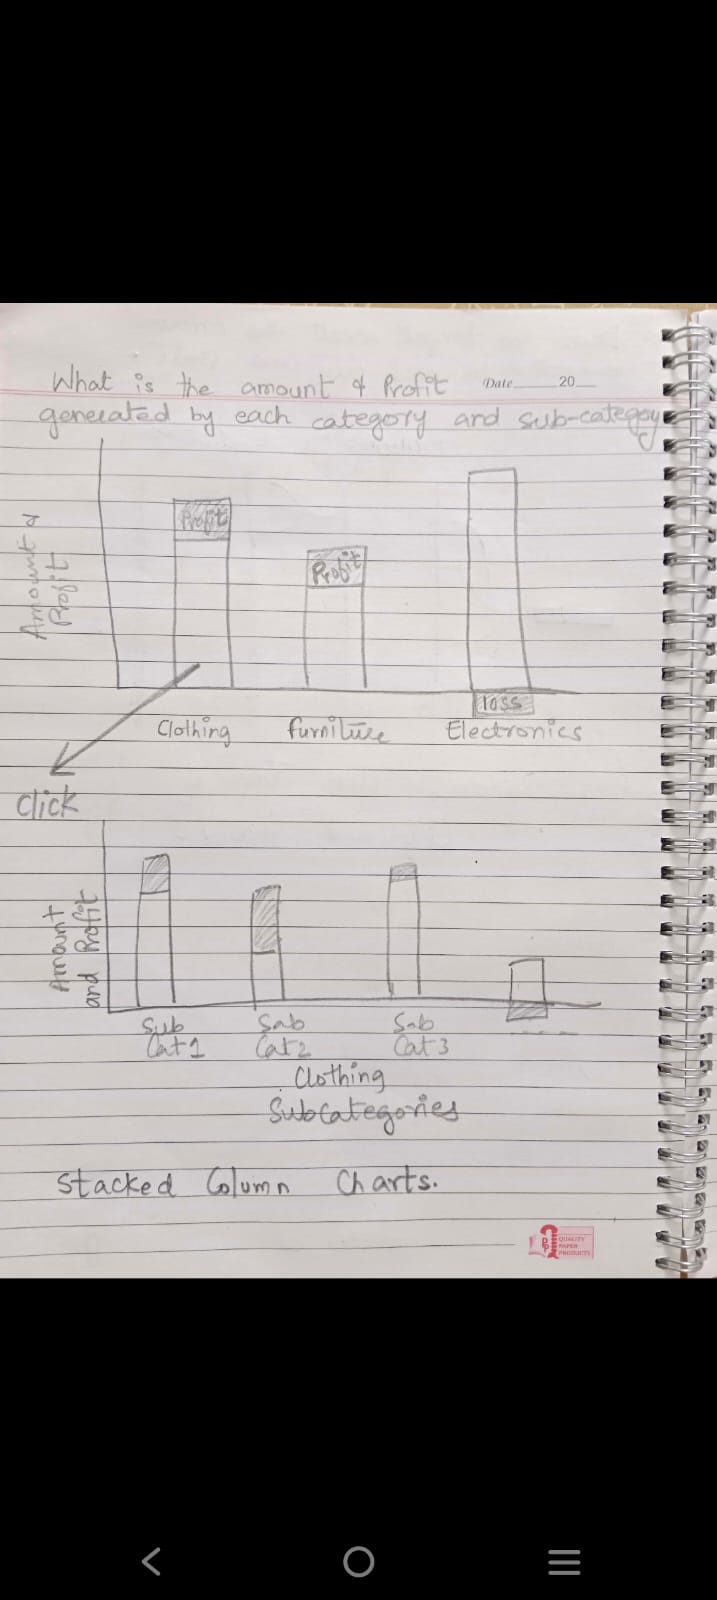 What is the amount & Profit
Date 20
generated by each category and sub-category
Amount &
Profit
Profit
Profit
loss
Clothing
furniture
Electronics
Click
Amount
and Profit
Sub
Cat 1
Sub
Cat 2
Sub
Cat 3
Clothing
Subcategories
Stacked Column Charts.
QUALITY
PAPER
PRODUCTS